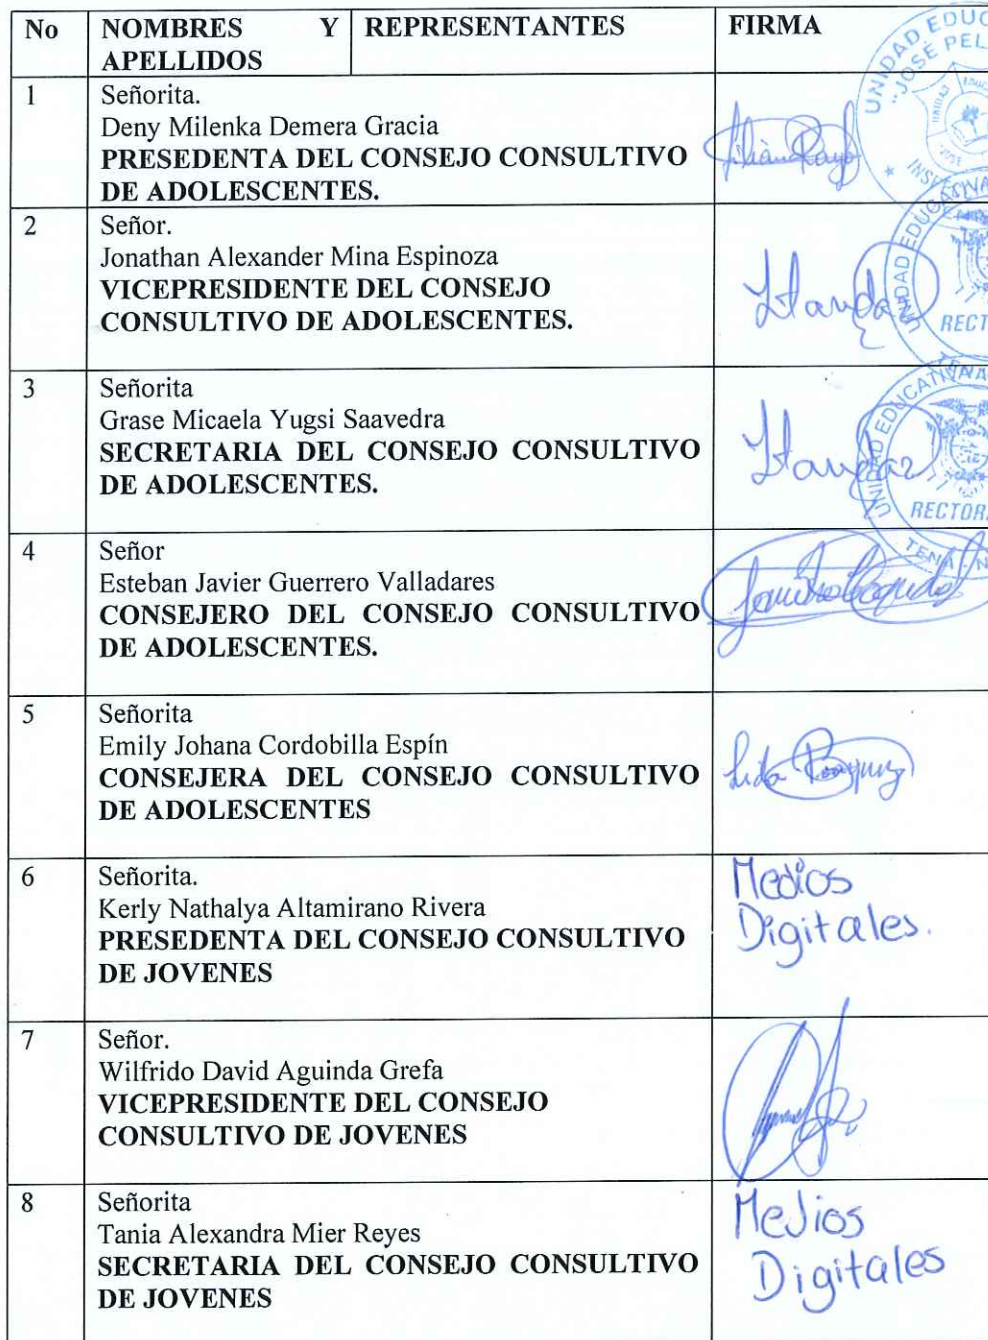 No NOMBRES Y APELLIDOS REPRESENTANTES FIRMA
1 Señorita.
Deny Milenka Demera Gracia
PRESEDENTA DEL CONSEJO CONSULTIVO
DE ADOLESCENTES.
UNIDAD EDUC
"JOSÉ PEL
2 Señor.
Jonathan Alexander Mina Espinoza
VICEPRESIDENTE DEL CONSEJO
CONSULTIVO DE ADOLESCENTES.
UNIDAD
RECT
3 Señorita
Grase Micaela Yugsi Saavedra
SECRETARIA DEL CONSEJO CONSULTIVO
DE ADOLESCENTES.
UNIDAD EDUCATIVA
RECTOR
TENA - N
4 Señor
Esteban Javier Guerrero Valladares
CONSEJERO DEL CONSEJO CONSULTIVO
DE ADOLESCENTES.
5 Señorita
Emily Johana Cordobilla Espín
CONSEJERA DEL CONSEJO CONSULTIVO
DE ADOLESCENTES
6 Señorita.
Kerly Nathalya Altamirano Rivera
PRESEDENTA DEL CONSEJO CONSULTIVO
DE JOVENES
Medios
Digitales.
7 Señor.
Wilfrido David Aguinda Grefa
VICEPRESIDENTE DEL CONSEJO
CONSULTIVO DE JOVENES
8 Señorita
Tania Alexandra Mier Reyes
SECRETARIA DEL CONSEJO CONSULTIVO
DE JOVENES
Medios
Digitales